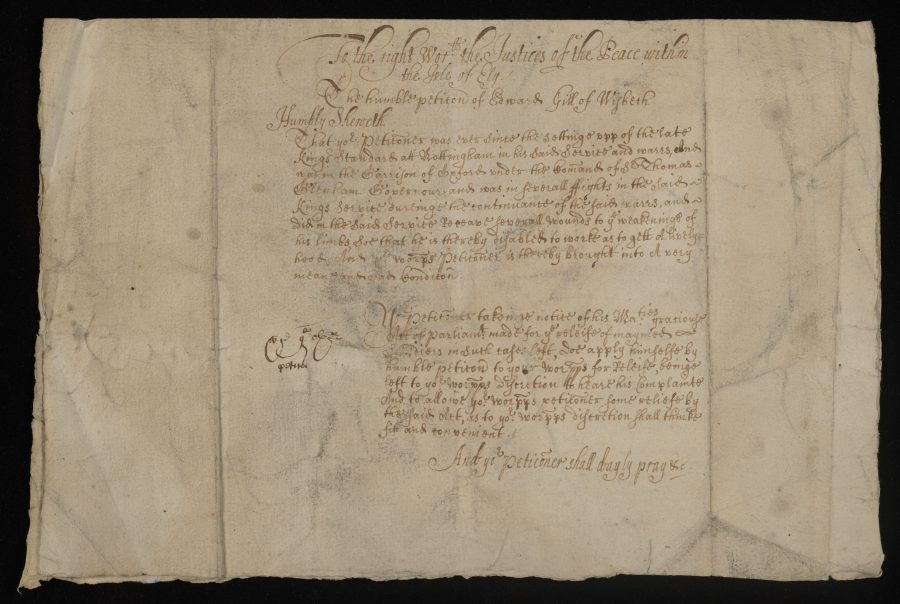 To the right Worth the Justices of the Peace within
the Isle of Ely.
The humble petiton of Edward Gill of Wisbeth
Humbly Sheweth
That yor Peticoner was ever since the settinge upp of the late
Kings Standard att Nottingham in his said Service and warrs, and
was in the Garrison of Oxford under the Comand of Sr Thomas
Glenham Governour, and was in severall ffights in the said
Kings Service dureinge the continuance of the said warrs, and
did in the said Service Receave severall wounds to ye weakninge of
his limbs Soe that he is thereby disabled to worke as to gett A livelye
hood, And yor worpps Peticoner is thereby brought into A very
meane and sad Condicon
Yor Peticoner takeinge notice of his Maties gracious
Act of Parliamt made for ye releife of maymed
Souldiers in such case left, doe apply himselfe by
humble peticon to your worpps for Releife beinge
left to yor worpps discretion to heare his complainte
And to allowe yor worpps peticoner some releife by
the said Act, as to yor worpps discretion shall thinke
fitt and convenient
petition
And yor Peticoner shall dayly pray &c.